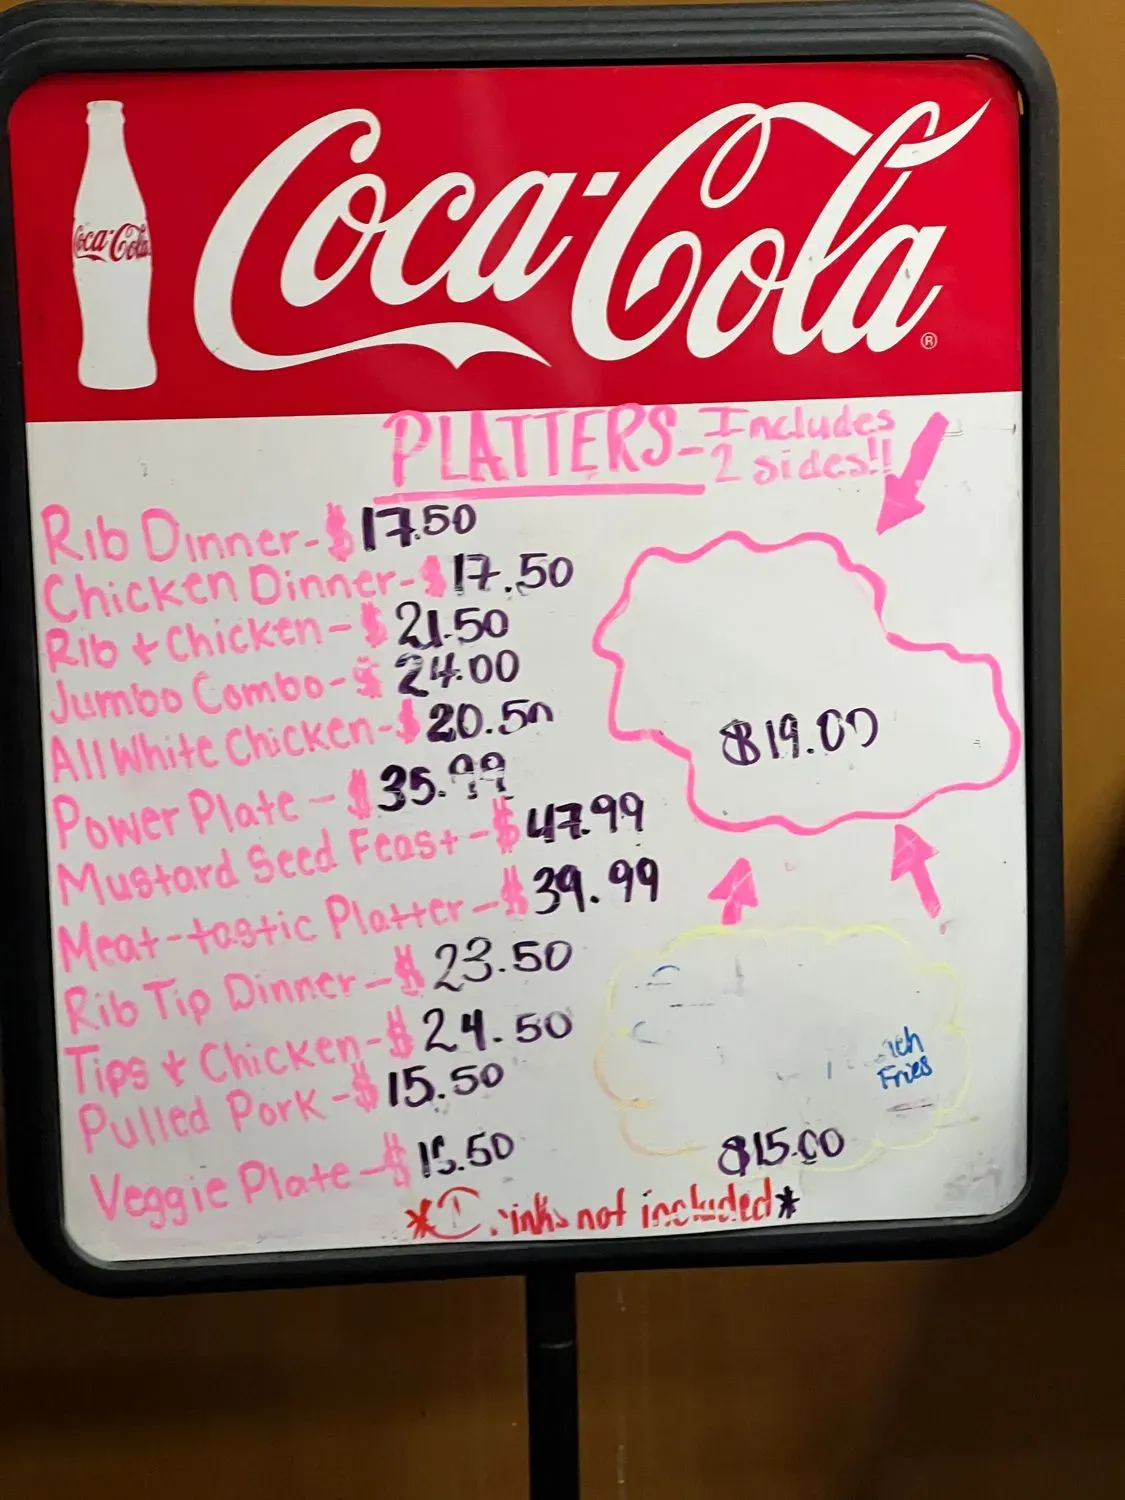 Coca-Cola
Coca-Cola®
PLATTERS - Includes
2 sides!!
Rib Dinner - $17.50
Chicken Dinner - $17.50
Rib + Chicken - $21.50
Jumbo Combo - $24.00
All White Chicken - $20.50
Power Plate - $35.99
Mustard Seed Feast - $47.99
Meat-tastic Platter - $39.99
Rib Tip Dinner - $23.50
Tips + Chicken - $24.50
Pulled Pork - $15.50
Veggie Plate - $15.50
*Drinks not included*
$19.00
Fries
$15.00